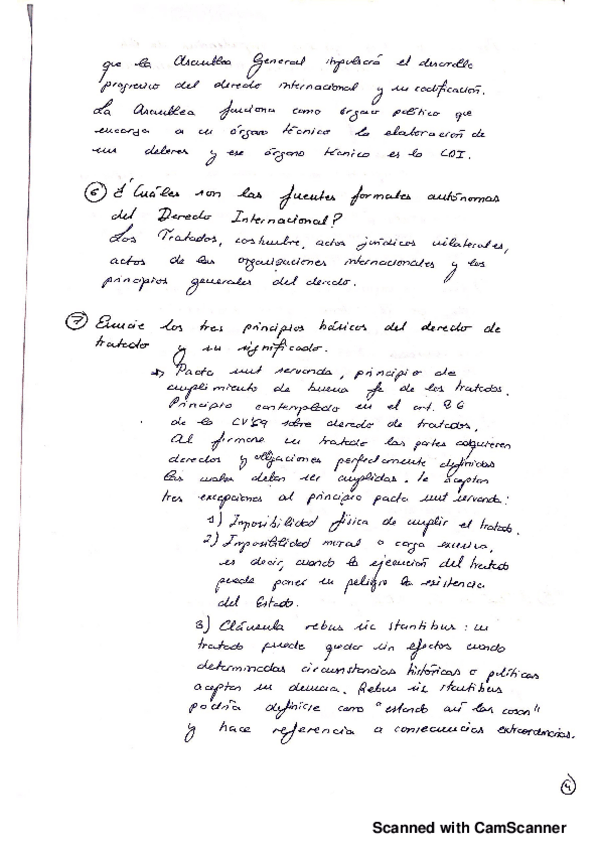 que la Asamblea General impulsará el desarrollo
progresivo del derecho internacional y su codificación.
La Asamblea funciona como órgano político que
encarga a un órgano técnico la elaboración de
sus deberes y ese órgano técnico es la CDI.
6 ¿Cuáles son las fuentes formales autónomas
del Derecho Internacional?
Los Tratados, costumbre, actos jurídicos unilaterales,
actos de las organizaciones internacionales y los
principios generales del derecho.
7 Enuncie los tres principios básicos del derecho de
tratado y su significado.
→ Pacta sunt servanda, principio de
cumplimiento de buena fe de los tratados.
Principio contemplado en el art. 26
de la CV'69 sobre derecho de tratados.
Al firmarse un tratado las partes adquieren
derechos y obligaciones perfectamente definidas
las cuales deben ser cumplidas. Se aceptan
tres excepciones al principio pacta sunt servanda:
1) Imposibilidad física de cumplir el tratado.
2) Imposibilidad moral o carga excesiva,
es decir, cuando la ejecución del tratado
puede poner en peligro la existencia
del Estado.
3) Cláusula rebus sic stantibus: un
tratado puede quedar sin efectos cuando
determinadas circunstancias históricas o políticas
aceptan su Rebus sic stantibus
podría definirse como "estando así las cosas"
y hace referencia a consecuencias extraordinarias.
4
Scanned with CamScanner